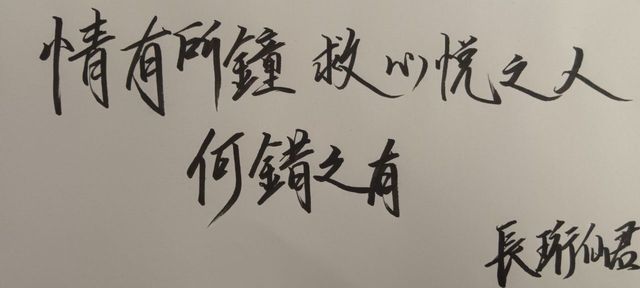 情有所鐘 救心悅之人
何錯之有
長珩仙君